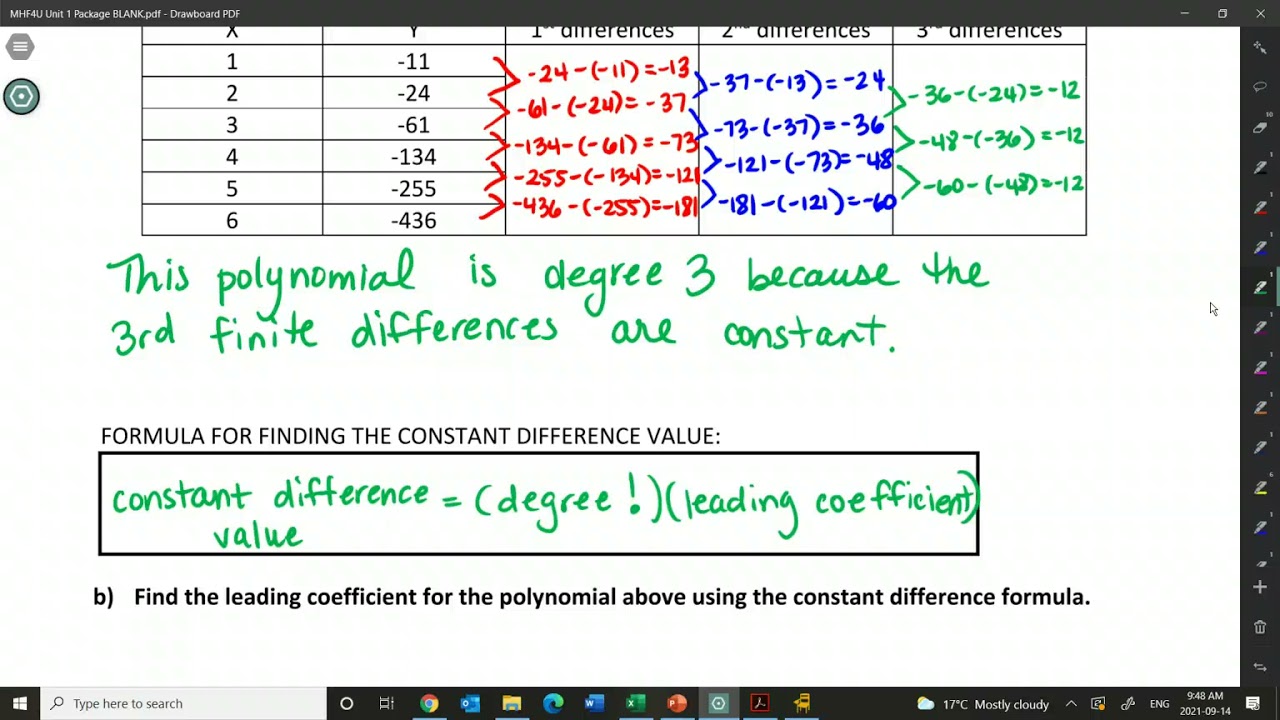 MHF4U Unit 1 Package BLANK.pdf - Drawboard PDF
X Y 1st differences 2nd differences 3rd differences
1 -11
-24-(-11)=-13
-37-(-13)=-24
2 -24
-36-(-24)=-12
-61-(-24)=-37
3 -61
-73-(-37)=-36
-48-(-36)=-12
-134-(-61)=-73
4 -134
-121-(-73)=-48
-255-(-134)=-121
-60-(-48)=-12
5 -255
-436-(-255)=-181
-181-(-121)=-60
6 -436
This polynomial is degree 3 because the
3rd finite differences are constant.
FORMULA FOR FINDING THE CONSTANT DIFFERENCE VALUE:
constant difference = (degree!)(leading coefficient)
value
b) Find the leading coefficient for the polynomial above using the constant difference formula.
Type here to search
17°C Mostly cloudy
ENG
9:48 AM
2021-09-14